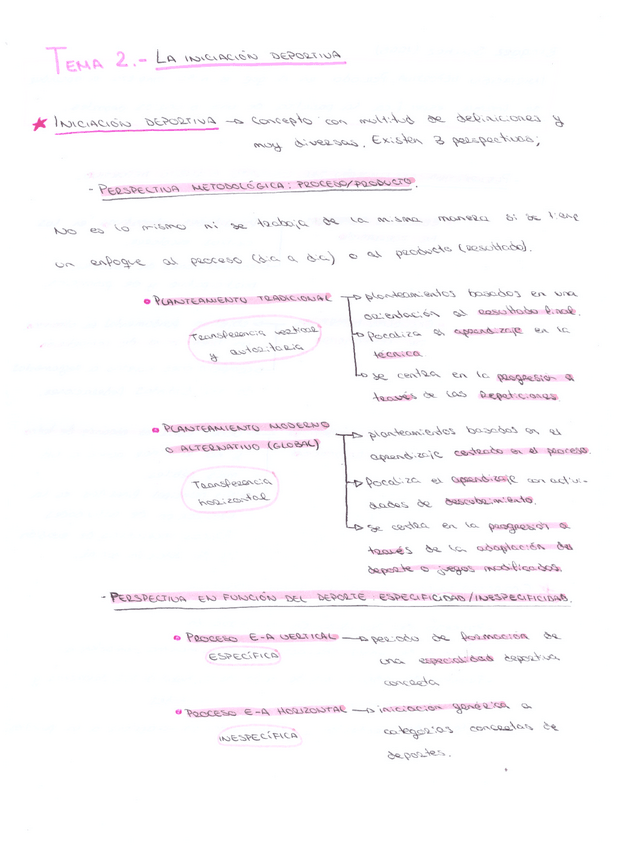 TEMA 2.- LA INICIACIÓN DEPORTIVA
★ INICIACIÓN DEPORTIVA → Concepto con multitud de definiciones y
muy diversas. Existen 3 perspectivas;
- PERSPECTIVA METODOLÓGICA: PROCESO/PRODUCTO.
No es lo mismo ni se trabaja de la misma manera si se tiene
un enfoque al proceso (día a día) o al producto (resultado).
• PLANTEAMIENTO TRADICIONAL
Transferencia vertical
y autoritaria
→ planteamientos basados en una
orientación al resultado final.
→ Focaliza el aprendizaje en la
técnica
→ se centra en la progresión a
través de las repeticiones
• PLANTEAMIENTO MODERNO
O ALTERNATIVO (GLOBAL)
Transferencia
horizontal
→ planteamientos basados en el
aprendizaje centrado en el proceso.
→ Focaliza el aprendizaje con activi-
dades de descubrimiento.
→ Se centra en la progresión a
través de la adaptación del
deporte o juegos modificados.
- PERSPECTIVA EN FUNCIÓN DEL DEPORTE ESPECIFICIDAD/INESPECIFICIDAD.
• PROCESO E-A VERTICAL → periodo de formación de
ESPECÍFICA
una especialidad deportiva
concreta
• PROCESO E-A HORIZONTAL → iniciación genérica a
INESPECÍFICA
categorías concretas de
deportes.